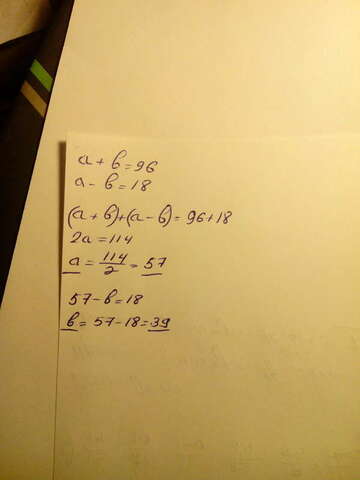 a + b = 96
a - b = 18
(a + b) + (a - b) = 96 + 18
2a = 114
a = 114/2 = 57
57 - b = 18
b = 57 - 18 = 39